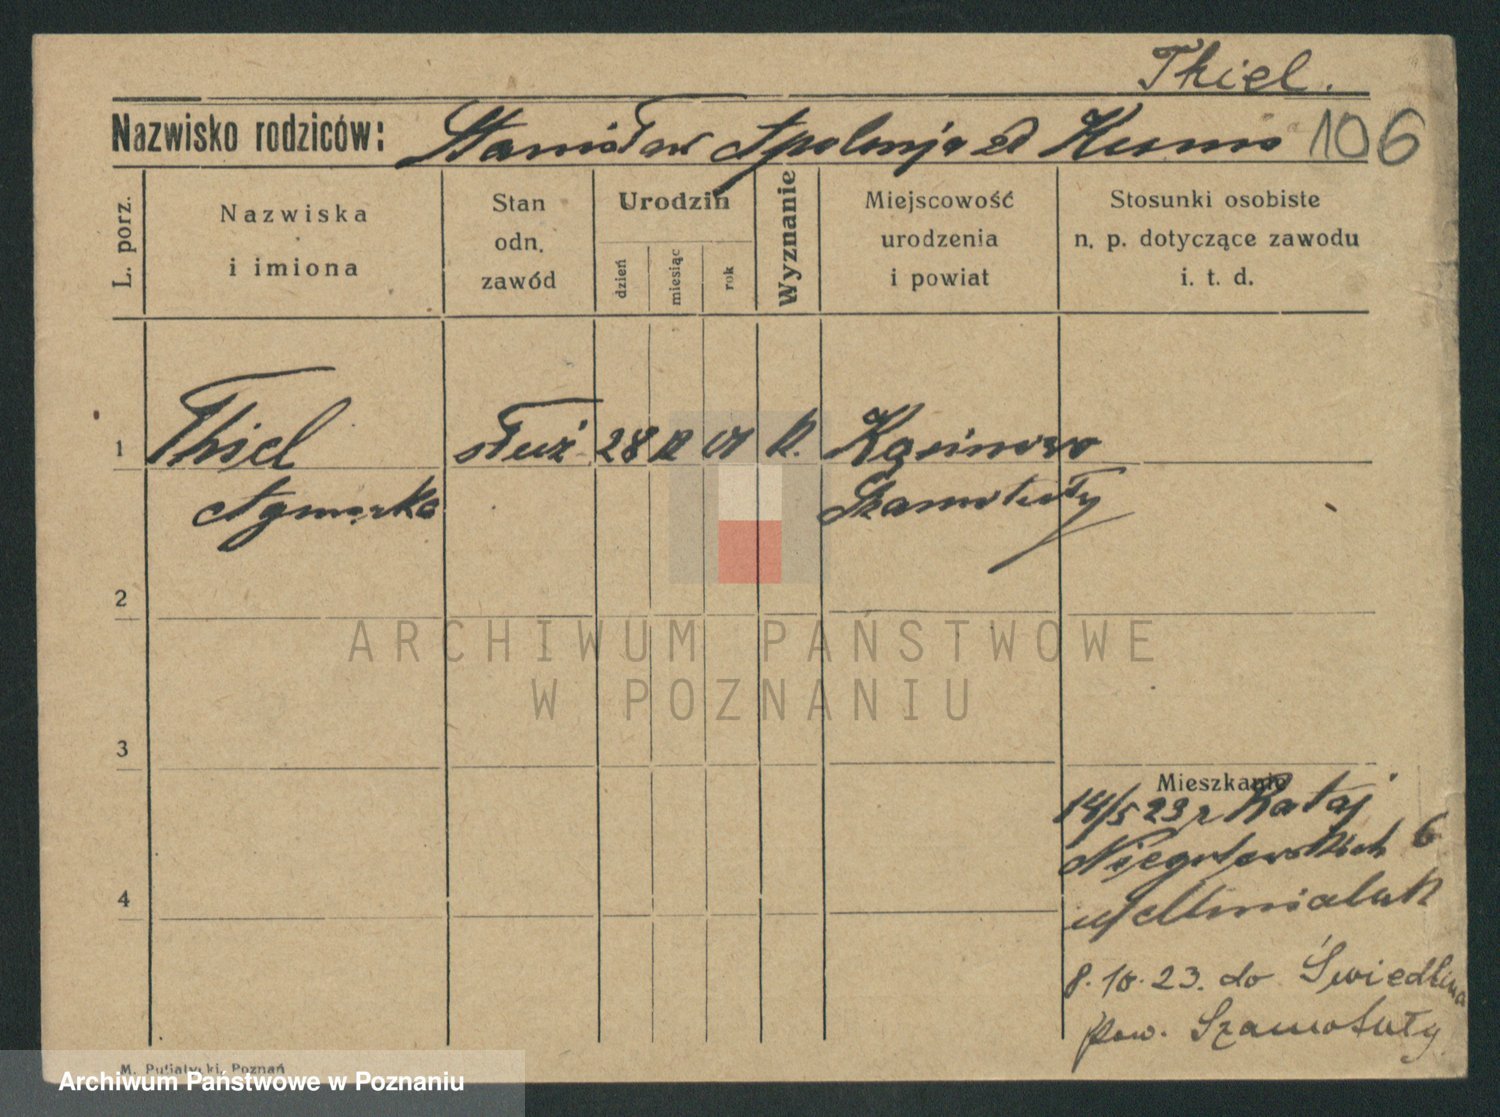 Thiel.
Nazwisko rodziców: Stanisław Apolonja zd Kuma 106
L. porz.
Nazwiska
i imiona
Stan
odn.
zawód
Urodzin
dzień
miesiąc
rok
Wyznanie
Miejscowość
urodzenia
i powiat
Stosunki osobiste
n. p. dotyczące zawodu
i. t. d.
1 Thiel służ 28 k. Kąsinowo
Agnieszka Szamotuły
2
ARCHIWUM PAŃSTWOWE
W POZNANIU
3
Mieszkanie
14/5 23 z Rataj
Niegolewskich 6
4
8.10.23. do Świedlina
pow. Szamotuły
M. Putiatycki, Poznań
Archiwum Państwowe w Poznaniu